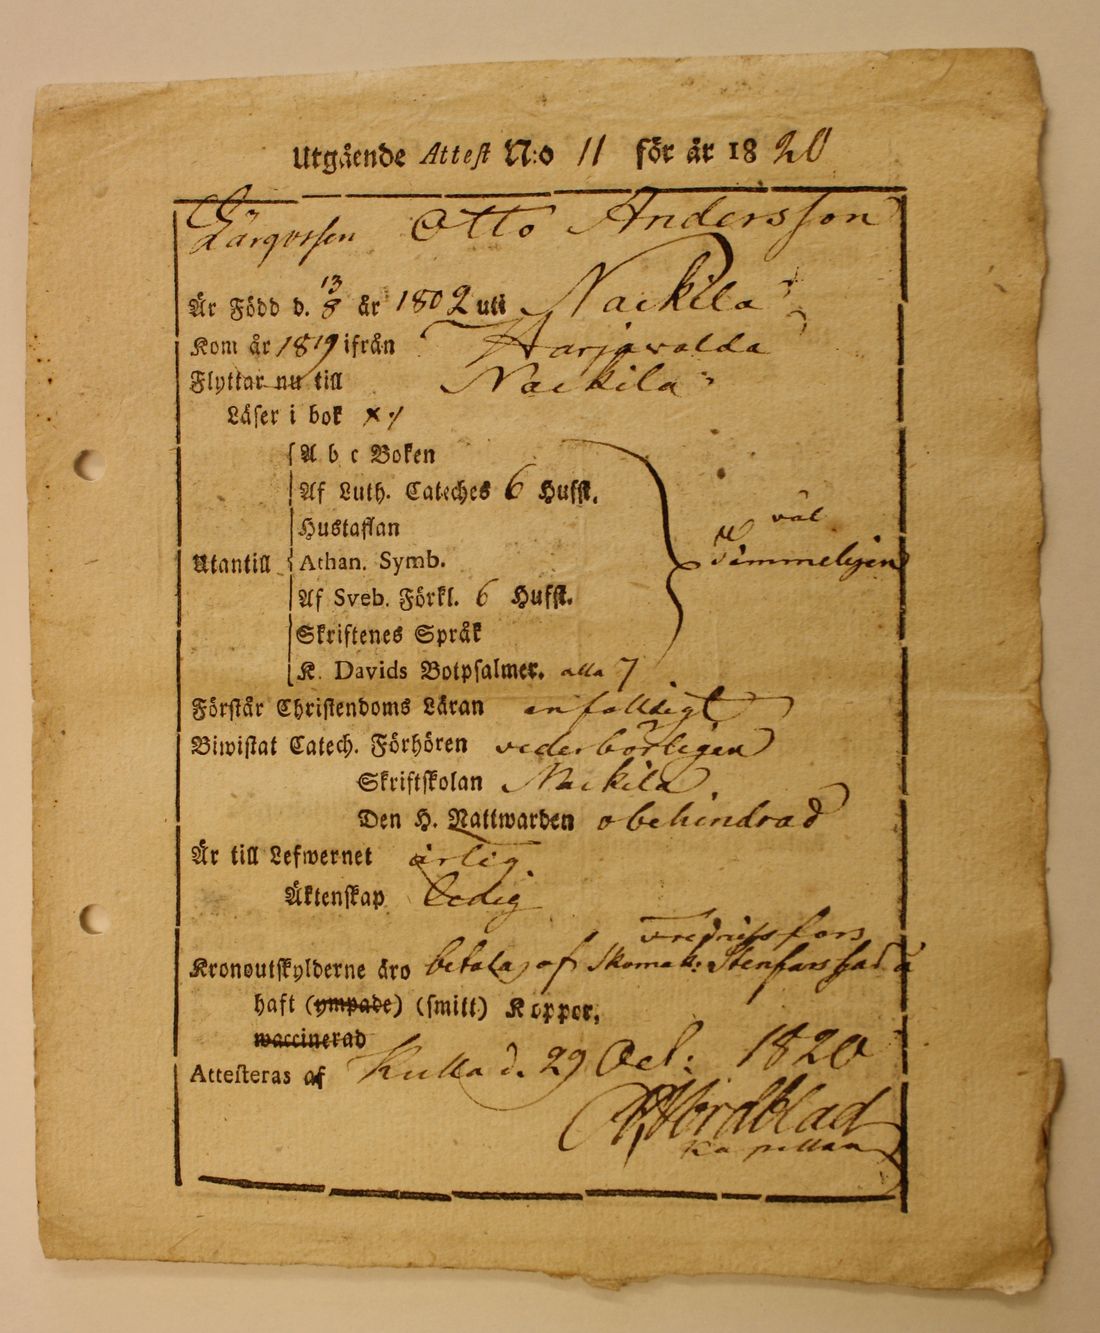 Utgående Attest N:o 11 för år 1820
Otto Andersson
Är Född d. 13/8 år 1802 uti Nackila
Kom år 1819 ifrån Harjavalda
Flyttar nu till Nackila
Läser i bok
A b c Boken
Af Luth. Cateches 6 Hufst.
Hustaflan
väl
Utantill Athan. Symb. Timmeligen
Af Sveb. Förkl. 6 Hufst.
Skriftenes Språk
K. Davids Botpsalmer. alla 7
Förstår Christendoms Läran enfalldigt
Biwistat Catech. Förhören vederbörligen
Skriftskolan Nackila
Den H. Nattwarden obehindrad
Är till Lefwernet ärlig
Äktenskap ledig
Fredriksfors
Kronoutskylderne äro betala, af Skomak:
haft (ympade) (smitt) Koppor,
waccinerad
Attesteras af Kulla d. 29 Oct: 1820
Nordblad
Kapellan